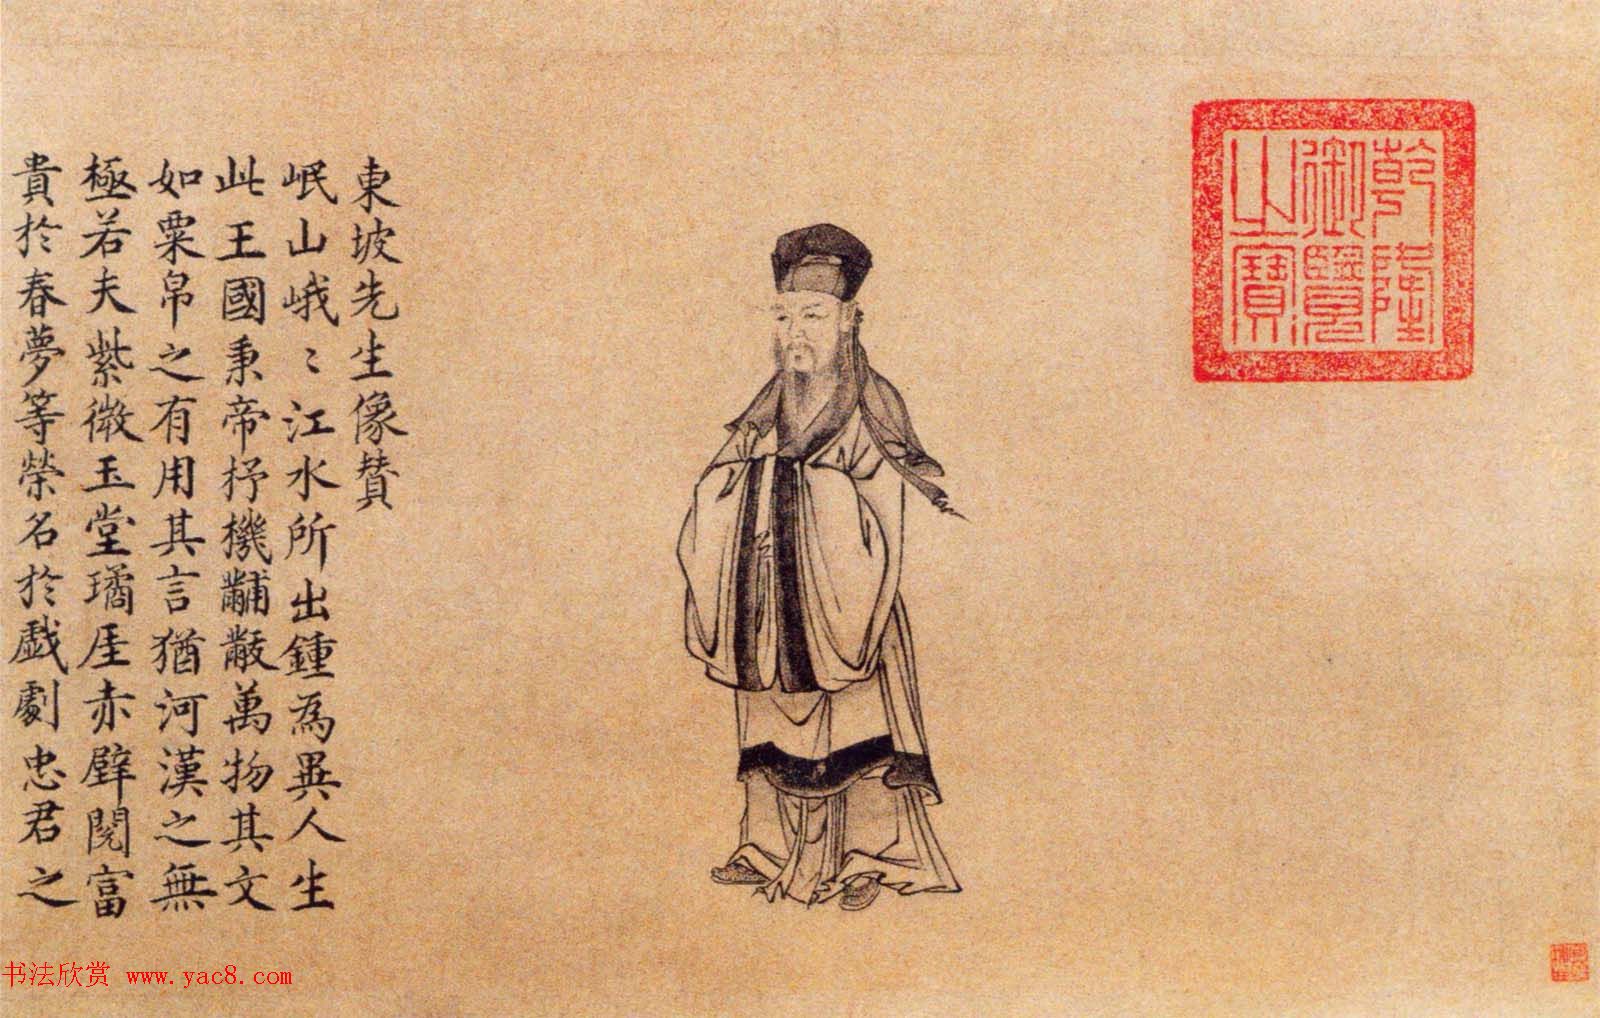 東坡先生像贊
岷山峨〻江水所出鍾為異人生
此王國秉帝杼機黼黻萬物其文
如粟帛之有用其言猶河漢之無
極若夫紫微玉堂璚厓赤壁閱富
貴於春夢等榮名於戲劇忠君之
乾隆
御覽
之寶
书法欣赏 www.yac8.com